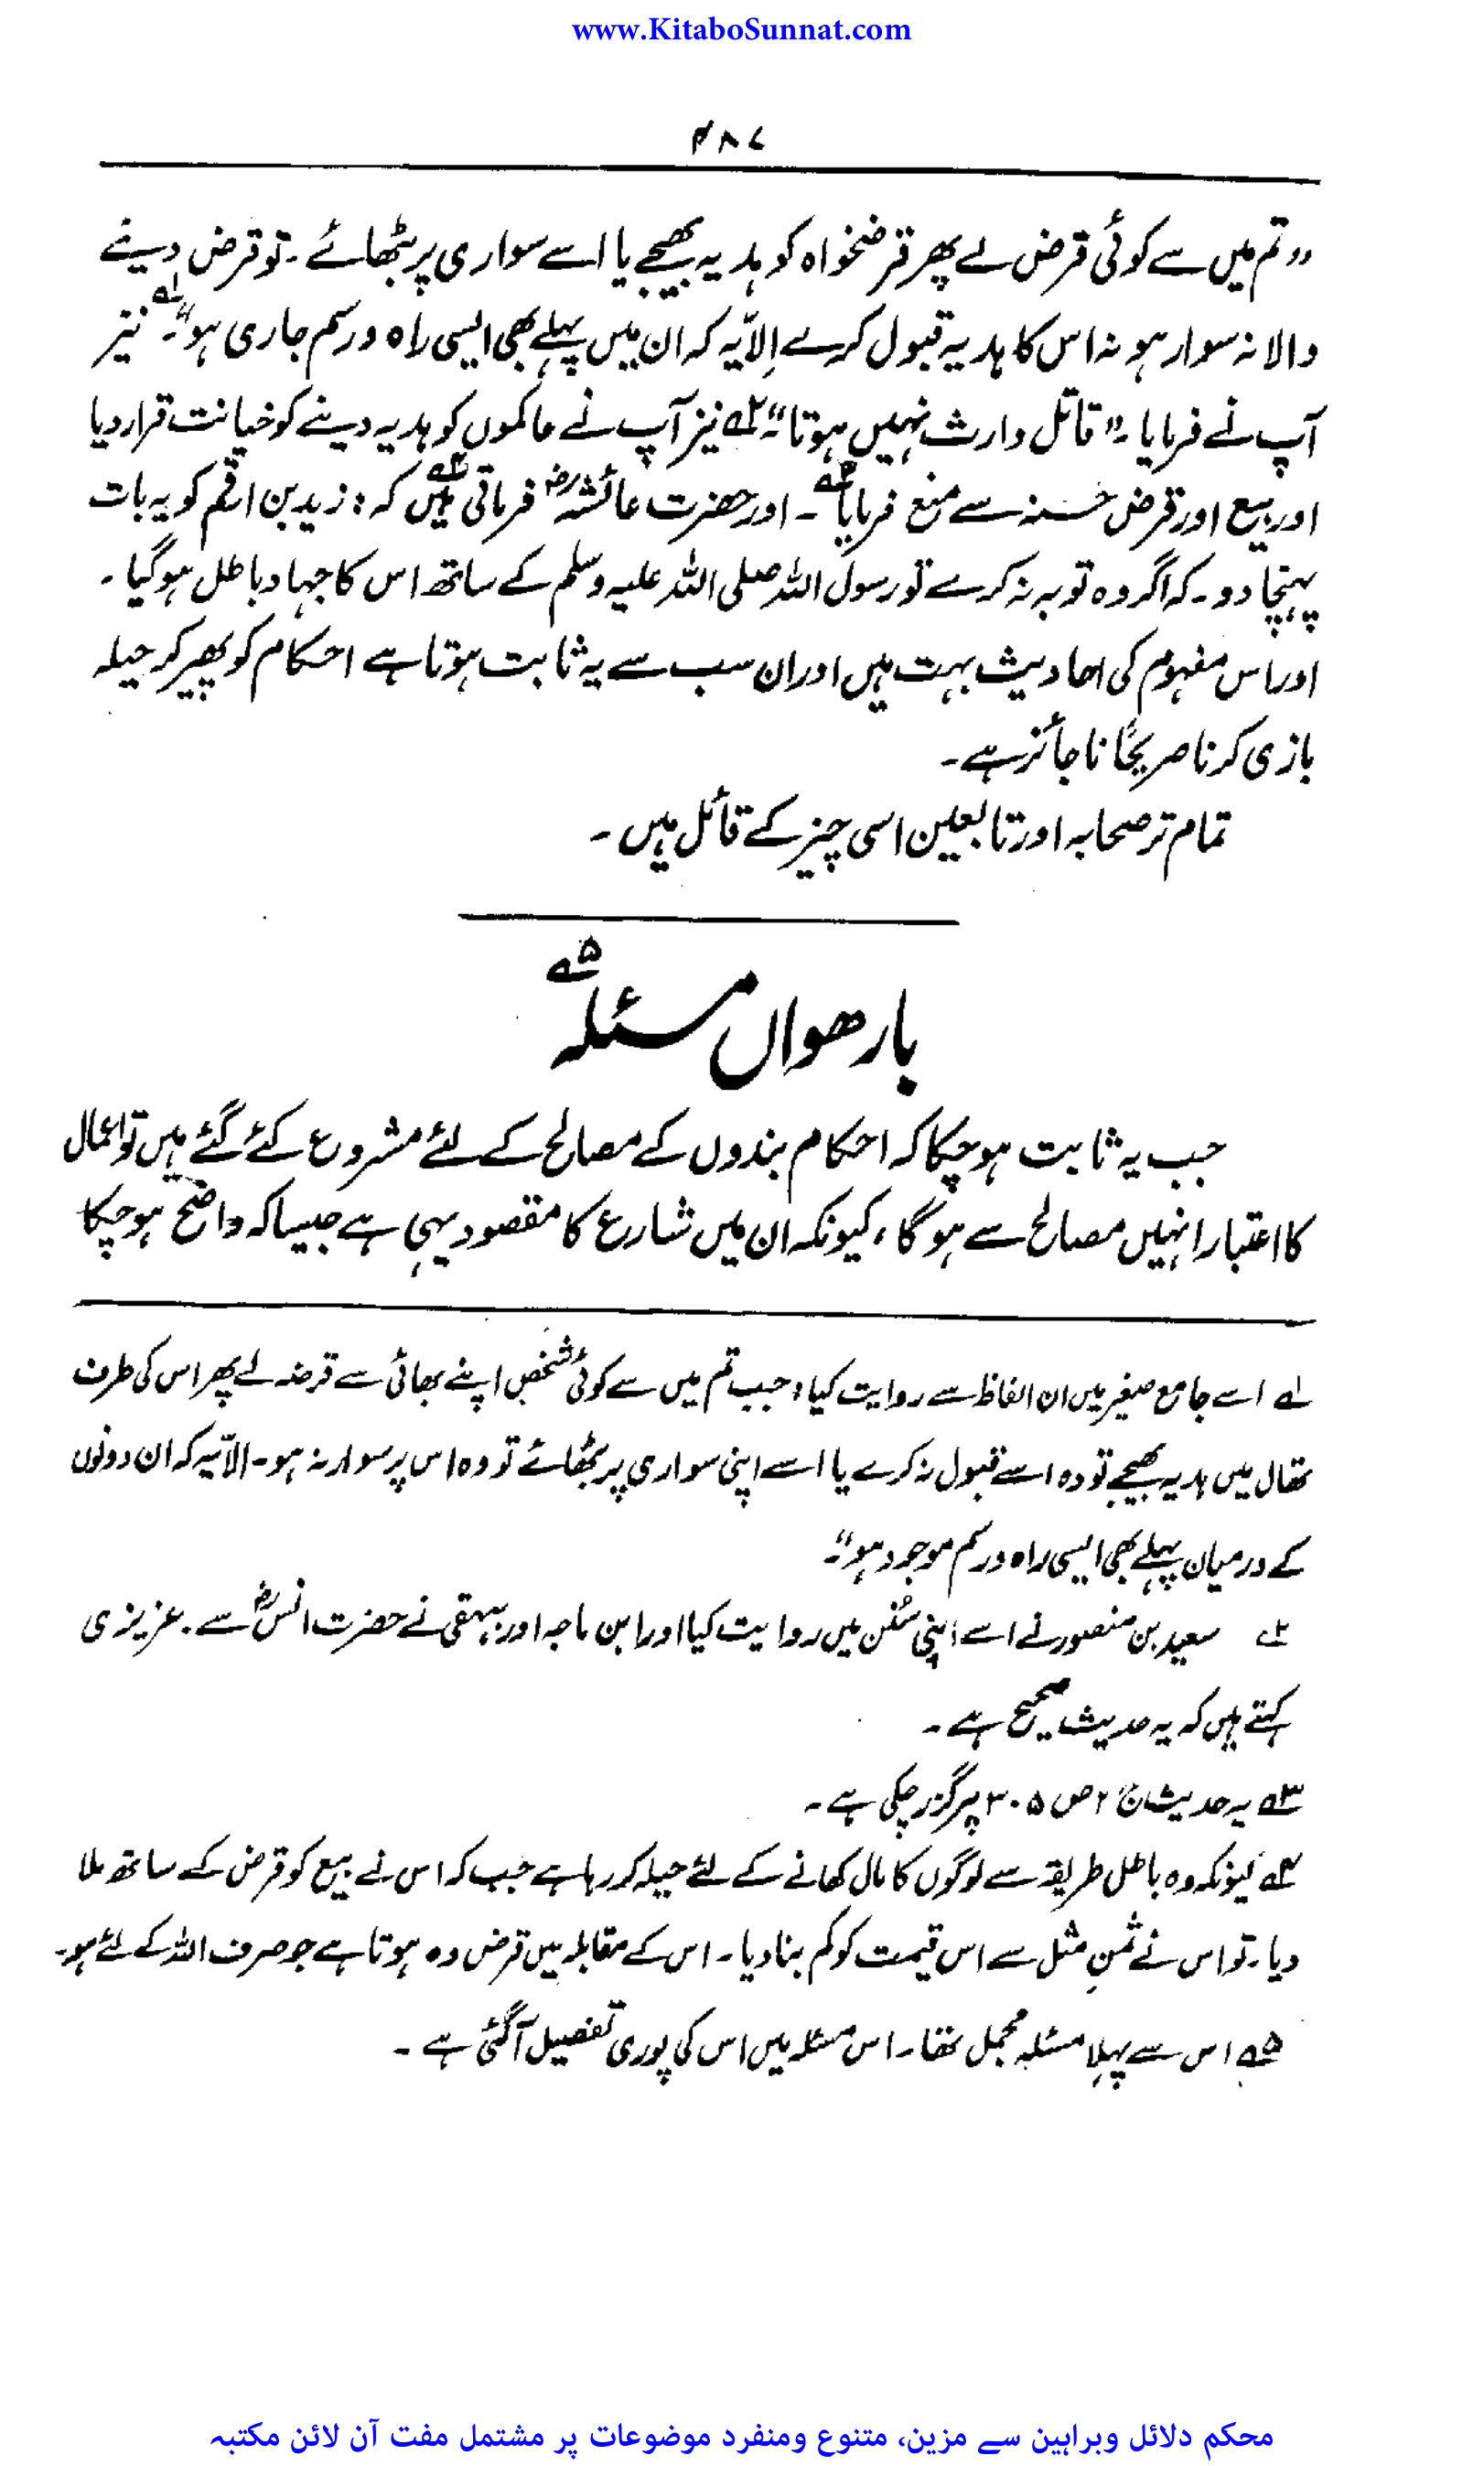 www.KitaboSunnat.com
۴۸۷
”تم میں سے کوئی قرض لے پھر قرضخواہ کو ہدیہ بھیجے یا اسے سواری پر بٹھائے۔ تو قرض دینے
والا نہ سوار ہو نہ اس کا ہدیہ قبول کرے اِلاّ یہ کہ ان میں پہلے بھی ایسی راہ و رسم جاری ہو“۔ ۱ھ نیز
آپ نے فرمایا۔ ”قاتل وارث نہیں ہوتا“۔ ۲ھ نیز آپ نے حاکموں کو ہدیہ دینے کو خیانت قرار دیا
اور بیع اور قرض حسنہ سے منع فرمایا ۴ھ۔ اور حضرت عائشہؓ فرماتی ہیں ۳ھ کہ: زید بن ارقم کو یہ بات
پہنچا دو۔ کہ اگر وہ توبہ نہ کرے تو رسول اللہ صلی اللہ علیہ وسلم کے ساتھ اس کا جہاد باطل ہو گیا۔
اور اس مفہوم کی احادیث بہت ہیں اور ان سب سے یہ ثابت ہوتا ہے احکام کو پھیر کر حیلہ
بازی کرنا صریحًا ناجائز ہے۔
تمام تر صحابہ اور تابعین اسی چیز کے قائل ہیں۔
بارھواں مسئلہ ۵ھ
جب یہ ثابت ہو چکا کہ احکام بندوں کے مصالح کے لئے مشروع کئے گئے ہیں تو اعمال
کا اعتبار انہیں مصالح سے ہو گا، کیونکہ ان میں شارع کا مقصود یہی ہے جیسا کہ واضح ہو چکا
۱ھ اسے جامع صغیر میں ان الفاظ سے روایت کیا، جب تم میں سے کوئی شخص اپنے بھائی سے قرضہ لے پھر اس کی طرف
تھال میں ہدیہ بھیجے تو وہ اسے قبول نہ کرے یا اسے اپنی سواری پر بٹھائے تو وہ اس پر سوار نہ ہو۔ الاّ یہ کہ ان دونوں
کے درمیان پہلے بھی ایسی راہ و رسم موجود ہو“۔
۲ھ سعید بن منصور نے اسے اپنی سُنن میں روایت کیا اور ابن ماجہ اور بیہقی نے حضرت انسؓ سے۔ عزیزی
کہتے ہیں کہ یہ حدیث صحیح ہے۔
۳ھ یہ حدیث ج ۲ ص ۳۰۵ پر گزر چکی ہے۔
۴ھ کیونکہ وہ باطل طریقہ سے لوگوں کا مال کھانے کے لئے حیلہ کر رہا ہے جب کہ اس نے بیع کو قرض کے ساتھ ملا
دیا۔ تو اس نے ثمنِ مثل سے اس قیمت کو کم بنا دیا۔ اس کے مقابلہ میں قرض وہ ہوتا ہے جو صرف اللہ کے لئے ہو۔
۵ھ اس سے پہلا مسئلہ مجمل تھا۔ اس مسئلہ میں اس کی پوری تفصیل آ گئی ہے۔
محکم دلائل وبراہین سے مزین، متنوع ومنفرد موضوعات پر مشتمل مفت آن لائن مکتبہ